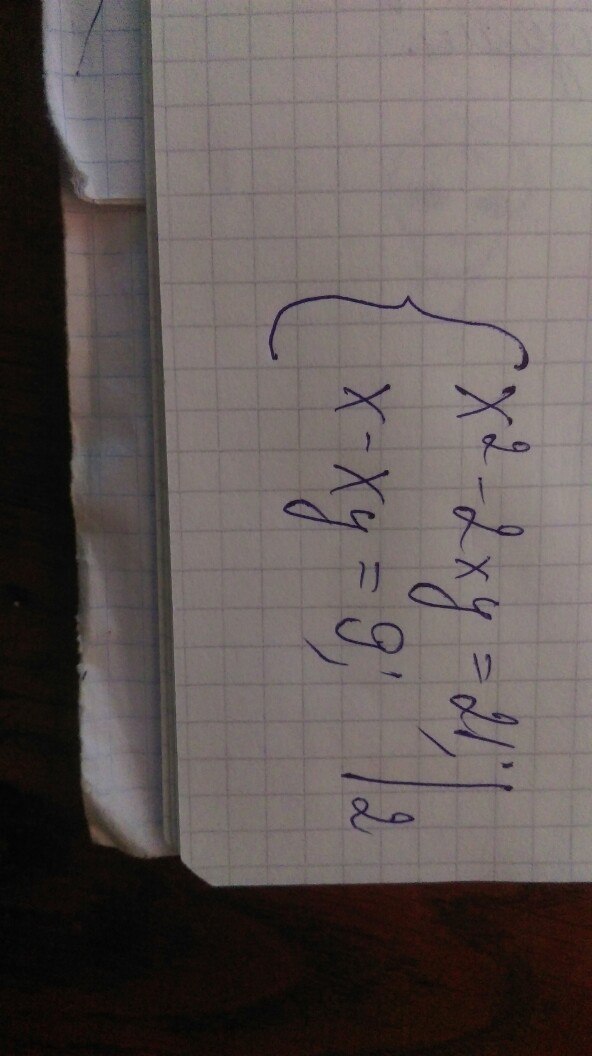 x² - 2xy = 21; | 2
x - xy = 9;